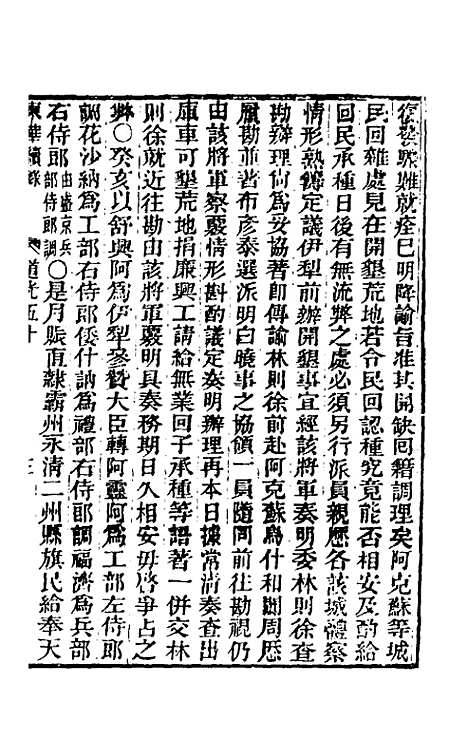 復艱難就痊已明降諭旨准其開缺回籍調理矣阿克蘇等城
民回雜處見在開墾荒地若令民回認種究竟能否相安及酌給
回民承種日後有無流弊之處必須另行派員親歷各該城體察
情形熟籌定議伊犁前辦開墾事宜經該將軍奏明委林則徐查
勘辦理何為妥協著即傳諭林則徐前赴阿克蘇烏什和闐周歷
履勘並著布彥泰選派明白曉事之協領一員隨同前往勘視仍
由該將軍察覈情形斟酌議定奏明辦理再本日據常清奏查出
庫車可墾荒地捐廉興工請給無業回子承種等語著一併交林
則徐就近往勘由該將軍覈明具奏務期日久相安毋啓爭占之
弊〇癸亥以舒興阿為伊犁參贊大臣轉阿靈阿為工部左侍郎
調花沙納為工部右侍郎倭什訥為禮部右侍郎調福濟為兵部
右侍郎由盛京兵部侍郎調〇是月賑直隸霸州永清二州縣旗民給奉天
東華續錄 道光五十 三